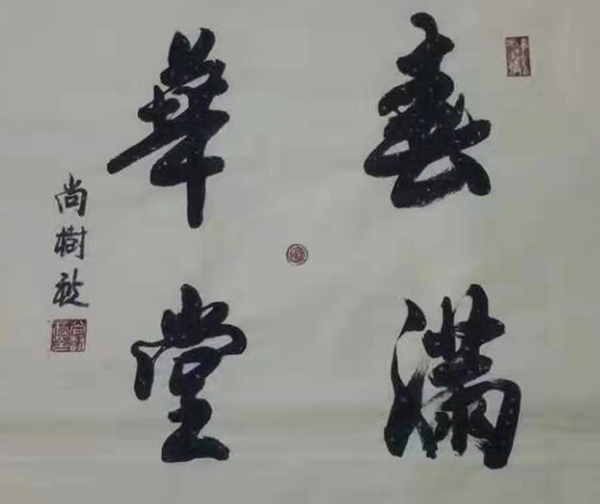 春滿
華堂
尚樹